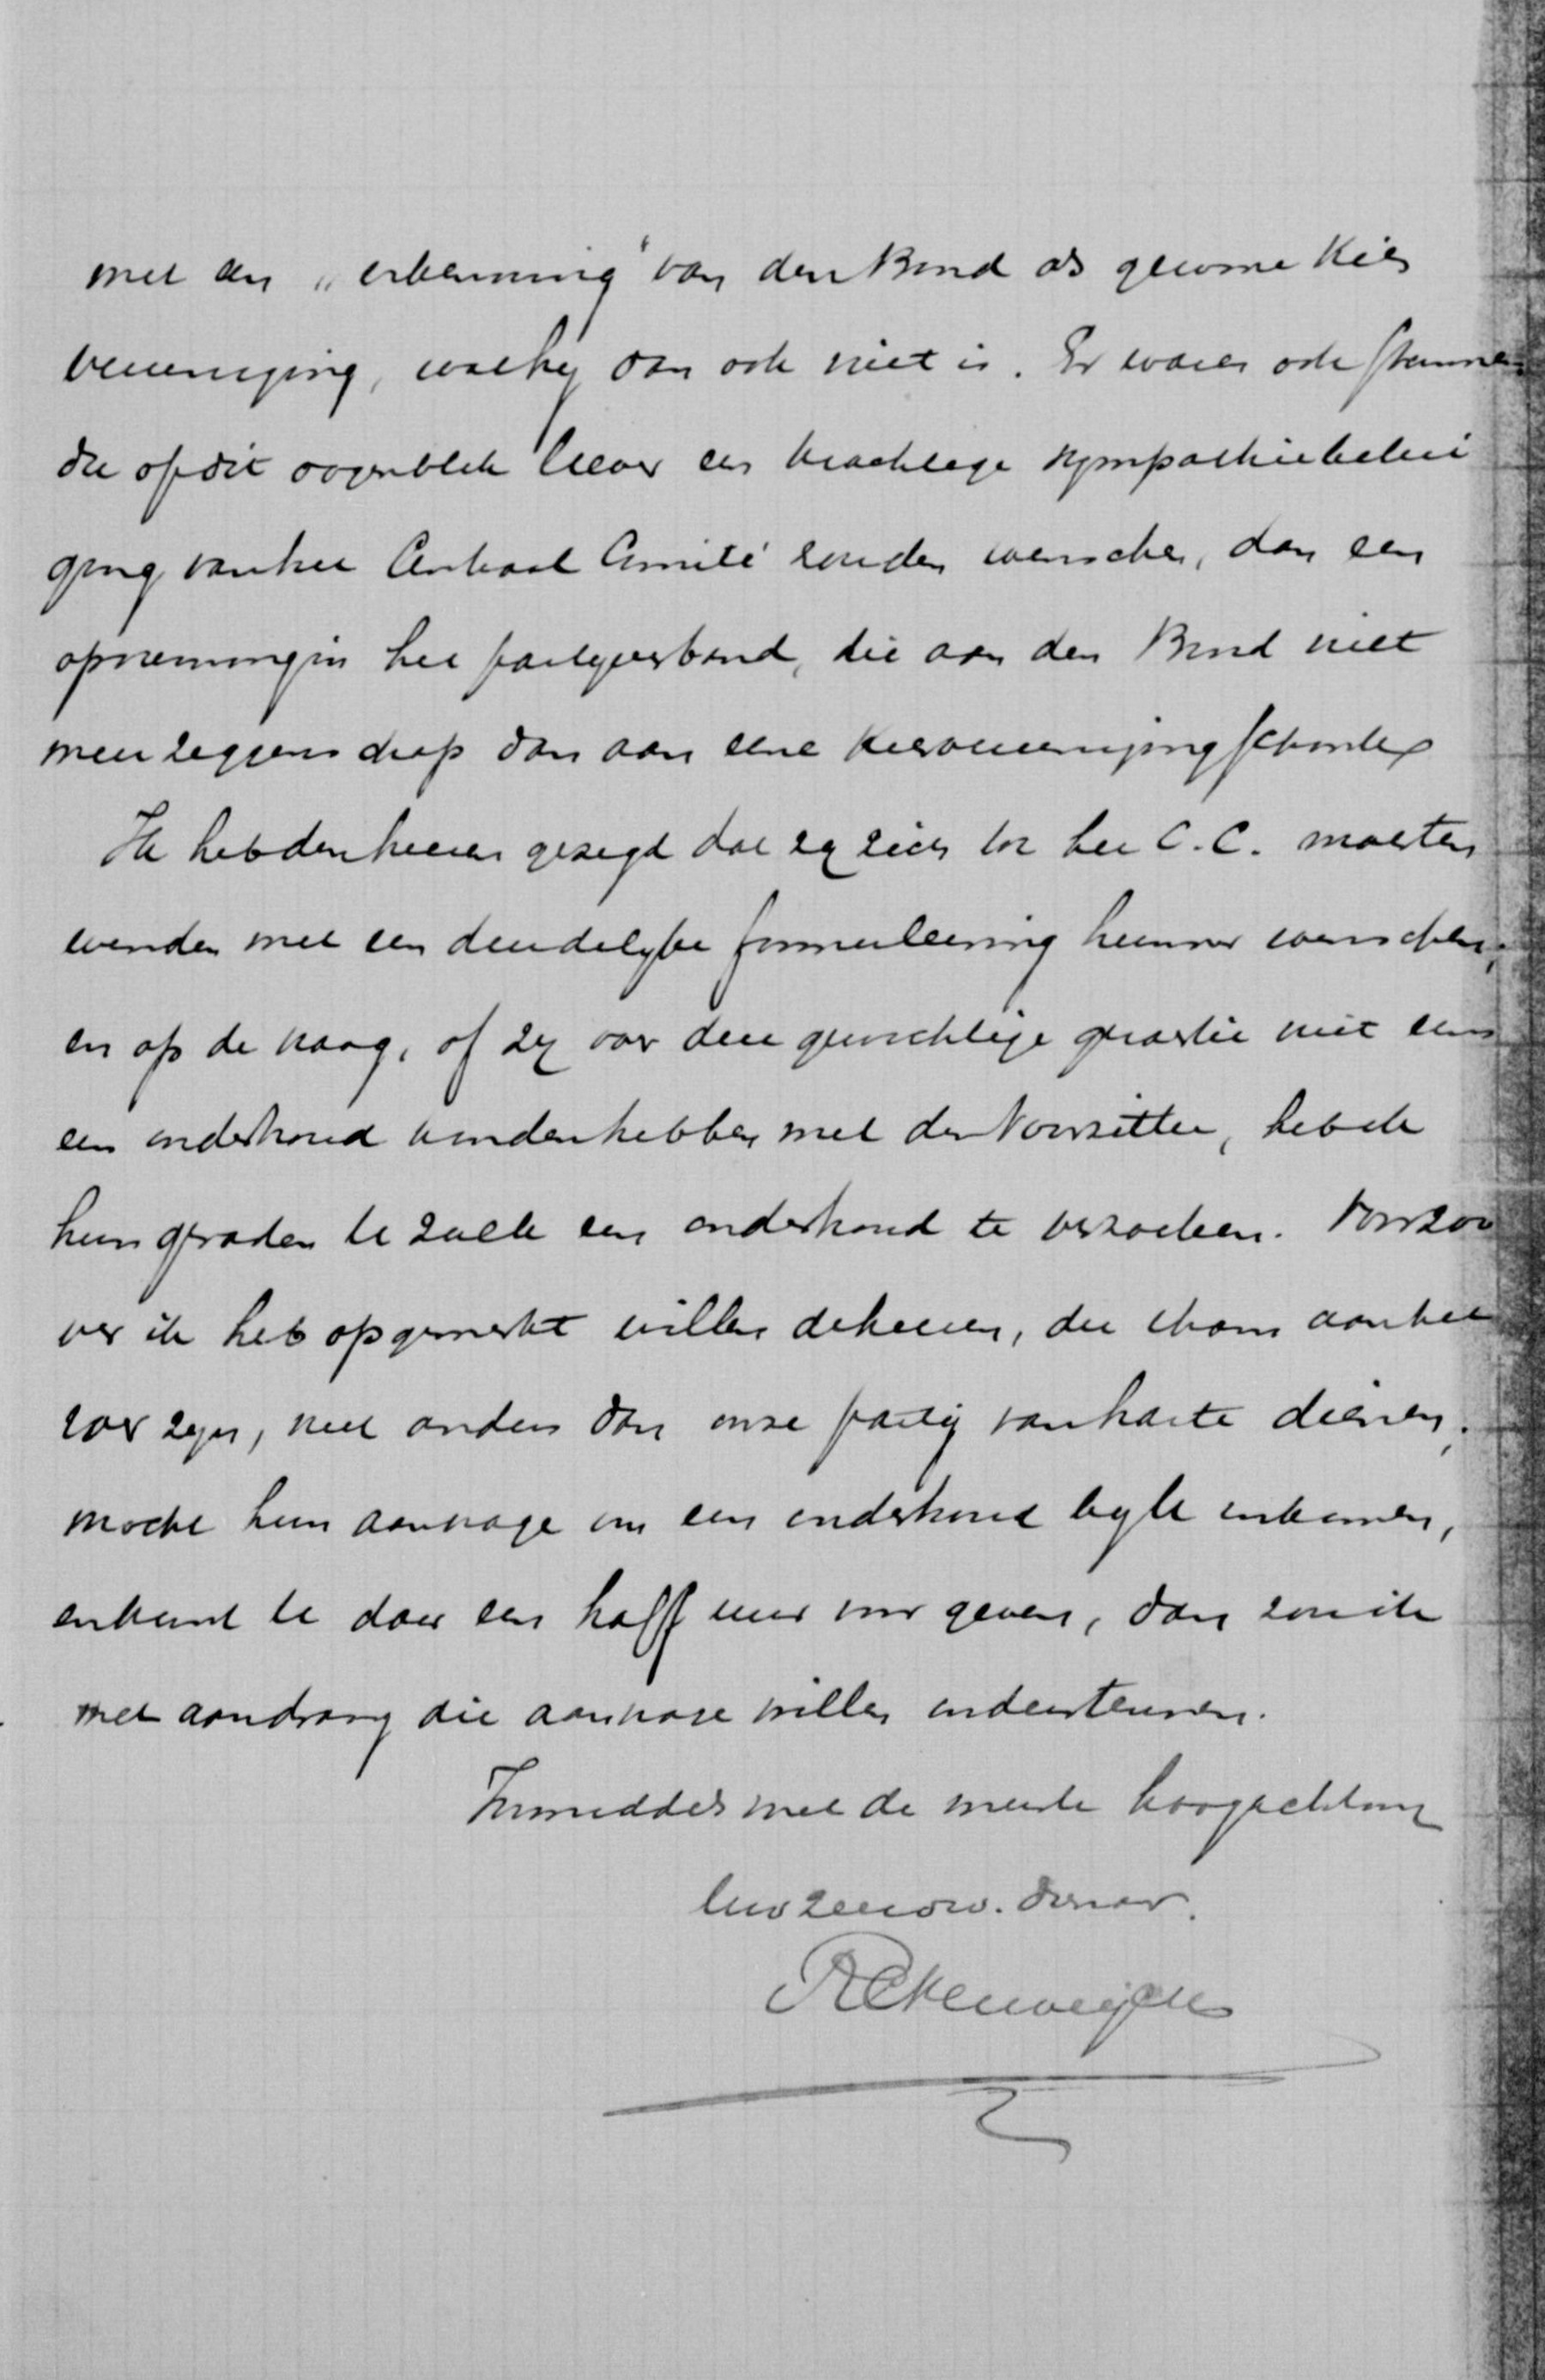 met een „erkenning" van den Bond als gewone kies
vereeniging, wat hy dan ook niet is. Er waren ook stemmen
die op dit oogenblik liever een krachtige sympathiebetui
ging van het Centraal Comité zouden wenschen, dan een
opneming in het partyverband, die aan den Bond niet
meer zeggenschap dan aan eene kiesvereeniging schonk.
Ik heb den heeren gezegd dat zy zich tot het C.C. moesten
wenden met een duidelyke formuleering hunner wenschen,
en op de vraag, of zy over deze gewichtige quaestie niet eens
een onderhoud konden hebben met den Voorzitter, heb ik
hun geraden te zulk een onderhoud te verzoeken. Voorzoo
ver ik heb opgemerkt willen de heeren, die thans aan het
roer zyn, niet anders dan onze party van harte dienen.
mocht hun aanvrage om een onderhoud by U inkomen,
en kunt U daar een half uur voor geven, dan zou ik
met aandrang die aanvrage willen ondersteunen.
Inmiddels met de meeste hoogachting
Uw zeerw. dienaar.